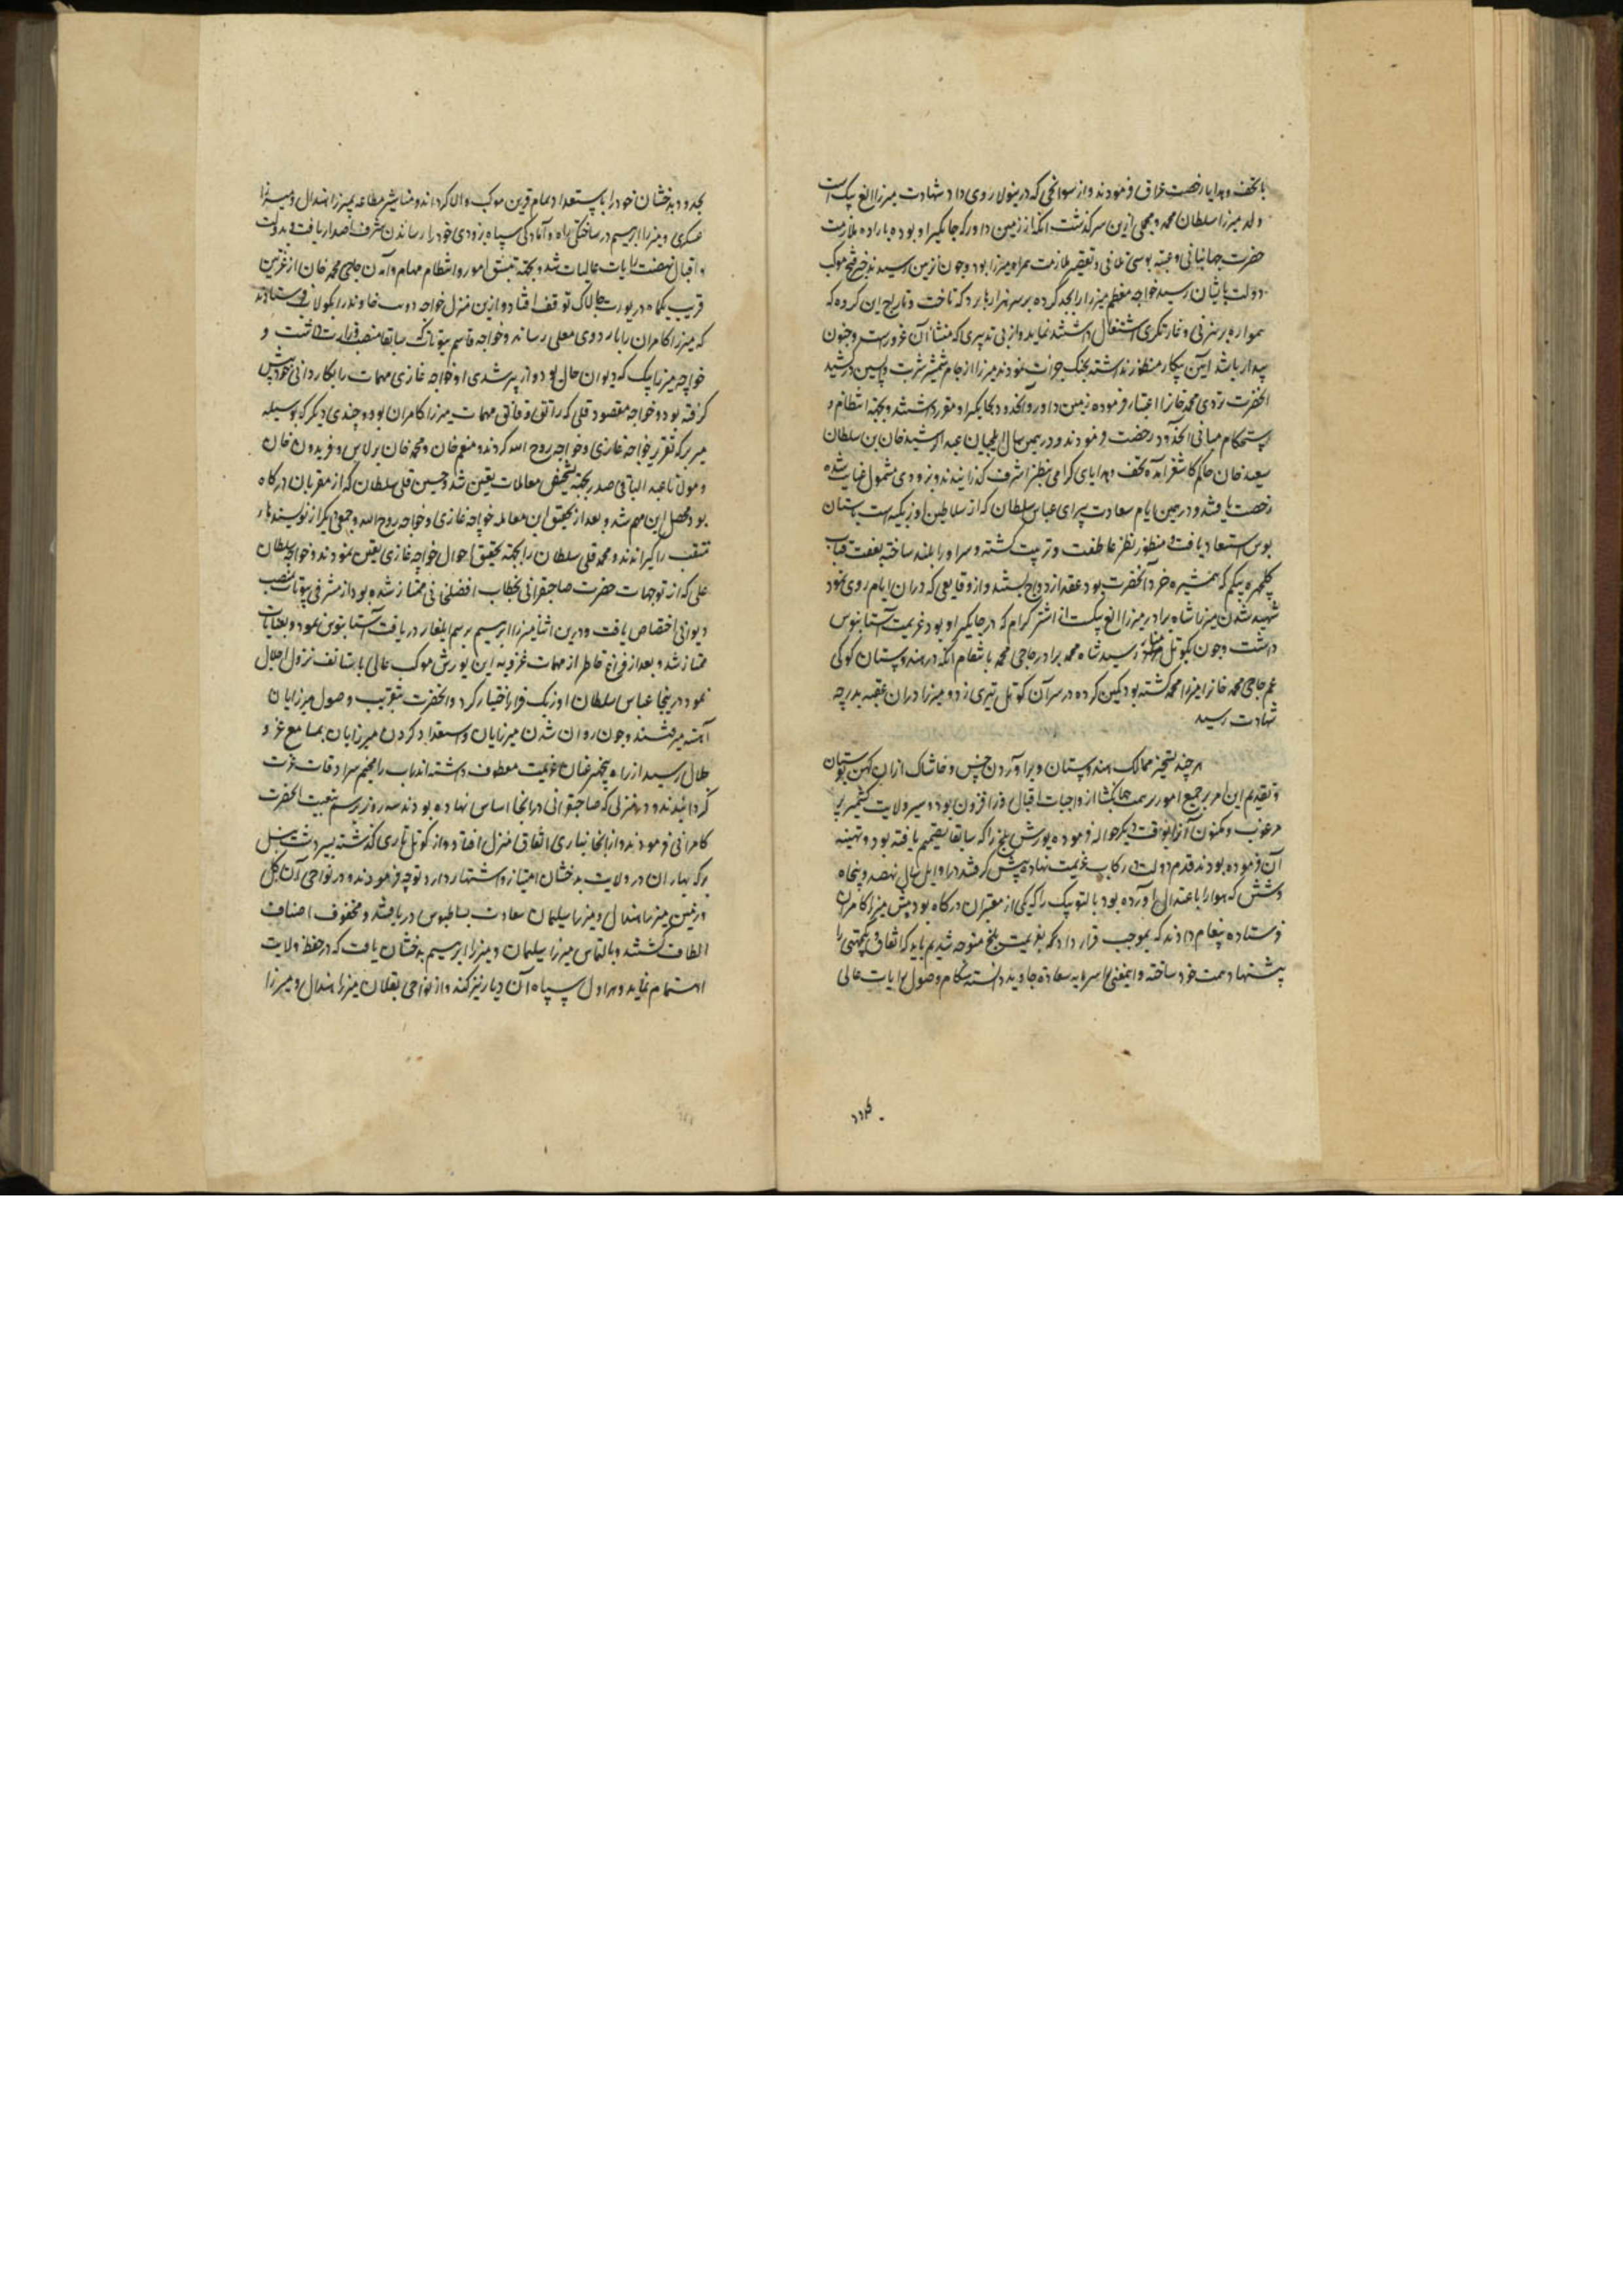 با تحف و هدایا رخصت عراق فرمودند و از سوانحی که درینولا روی داد شهادت میرزا الغ بیک است
ولد میرزا سلطان محمد و مجملی ازین سرگذشت آنکه از زمین داور که جایگیر او بود به اراده ملازمت
حضرت جهانبانی و عتبه بوسی تلافی و تقصیر ملازمت همراه میرزا بود و چون نزدیک رسید فتح موکب
دولت بایشان رسید خواجه معظم میرزا را بجد کرده بر سر هزارها برد که تاخت و تاراج این گروه که
همواره برهزنی و غارتگری اشتغال داشتند نماید و از بی تدبیری که منشأ آن غرورست و جنون
پیدار باشد آیین پیکار منظور نداشته بجنگ جرأت نمودند میرزا از جام شمشیر شربت واپسین در کشید
آنحضرت تردی محمد خانرا اعتبار فرموده زمین داور و آنحدود بجایگیر او مقرر داشتند و بجهة انتظام و
استحکام مبانی آنحدود رخصت فرمودند و در همین سال ایلچیان عبدالرشید خان بن سلطان
سعید خان حاکم کاشغر آمده تحف و هدایای گرامی بنظر اشرف گذرانیدند و بزودی مشمول عنایت شده
رخصت یافتند و در همین ایام سعادت پیرای عباس سلطان که از سلاطین اوزبکیه است بآستان
بوس استسعاد یافت و منظور نظر عاطفت و تربیت گشته و سر او را بلند ساخته بعفت قباب
گلچهره بیگم که همشیره خرد آنحضرت بود عقد ازدواج بستند و از وقایعی که دران ایام روی نمود
شهید شدن میرزا شاه برادر میرزا الغ بیک است از اشتر گرام که در جایگیر او بود عزیمت آستانبوس
داشت و چون بکوتل منار رسید شاه محمد برادر حاجی محمد بانتقام آنکه در هندوستان کوکی
عم حاجی محمد خانرا میرزا محمد کشته بود کمین کرده در سر آن کوتل تیری زد و میرزا دران عقبه بدرجه
شهادت رسید
هر چند تسخیر ممالک هندوستان و برآوردن خس و خاشاک ازان کهن بوستان
و تقدیم این امر بر جمیع امور بر همت جهانگشا از واجبات اقبال روز افزون بود و سیر ولایت کشمیر نیز
مرغوب و مکنون آنرا بوقت دیگر حواله فرموده یورش بلخ را که سابقا تصمیم یافته بود و تهیه
آن فرموده بودند قدم دولت در رکاب عزیمت نهاده پیش گرفتند در اوایل سال نهصد و پنجاه
و شش که هوا رو باعتدال آورده بود بالتو بیک را که یکی از معتبران درگاه بود پیش میرزا کامران
فرستاده پیغام دادند که بموجب قرارداد که بعزیمت بلخ متوجه شدیم باید که اتفاق و یکجهتی را
پیشنهاد همت خود ساخته و اینمعنی را سرمایه سعادت جاوید دانسته هنگام وصول رایات عالی
بحدود بدخشان خود را با استعداد تمام قرین موکب والا گردانند و مناشیر مطاعه بمیرزا هندال و میرزا
عسکری و میرزا ابرهیم در ساختگی راه و آمادگی سپاه بزودی خود را رساندن شرف اصدار یافت و بدولت
و اقبال نهضت رایات عالیات شد و بجهة تنسیق امور و انتظام مهام و آمدن حاجی محمد خان از غزنین
قریب یکماه در یورت چالاک توقف افتاد و ازین منزل خواجه دوست خاوند را بکولاب فرستادند
که میرزا کامران را باردوی معلی رساند و خواجه قاسم بیوتات که سابقا منصب وزارت داشت و
خواجه میرزا بیک که دیوان حال بود و از پیر شدی او خواجه غازی مهمات را بکاردانی خود پیش
گرفته بود و خواجه مقصود قلی که راتق و فاتق مهمات میرزا کامران بود و چندی دیگر که بوسیله
میر برکه تقریر خواجه غازی و خواجه روح الله کردند و منعم خان و محمد خان برلاس و فریدون خان
و مولانا عبد الباقی صدر بجهة تشخیص معاملات تعین شد و حسین قلی سلطان که از مقربان درگاه
بود محصل این مهم شد و بعد از تحقیق این معامله خواجه غازی و خواجه روح الله و جمعی دیگر از نویسندهاء
متقلب را گیراندند و محمد قلی سلطان را بجهة تحقیق احوال خواجه غازی تعین نمودند و خواجه سلطان
علی که از توجهات حضرت صاحبقرانی بخطاب افضلخانی ممتاز شده بود از مشرفی بیوتات بمنصب
دیوانی اختصاص یافت و درین اثنا میرزا ابرهیم برسم ایلغار دریافت آستانبوس نمود و بعنایات
ممتاز شد و بعد از فراغ خاطر از مهمات ضروریه این یورش موکب عالی باستالف نزول اجلال
نمود درینجا عباس سلطان اوزبک فرار اختیار کرد و آنحضرت بتقریب وصول میرزایان
آهسته میرفتند و چون روان شدن میرزایان و استعداد کردن میرزایان بمسامع عز و
جلال رسید از راه پنجهیر عنان عزیمت معطوف داشته اندراب را مخیم سرادقات عزت
گردانیدند و در منزلی که صاحبقرانی در انجا اساس نهاده بودند سه روز برسم تبعیت آنحضرت
کامرانی فرمودند و از انجا بناری اتفاق منزل افتاد و از کوتل ناری گذشته بسیر دشت نیل
بر که بهاران در ولایت بدخشان امتیاز و اشتهار دارد توجه فرمودند و در نواحی آن گل
زمین میرزا هندال و میرزا سلیمان سعادت بساطبوس دریافتند و محفوف اصناف
الطاف گشتند و بالتماس میرزا سلیمان و میرزا ابرهیم بدخشان یافت که در حفظ ولایت
اهتمام نماید و هراول سپاه آن دیار نیز کند و از نواحی بقلان میرزا هندال و میرزا